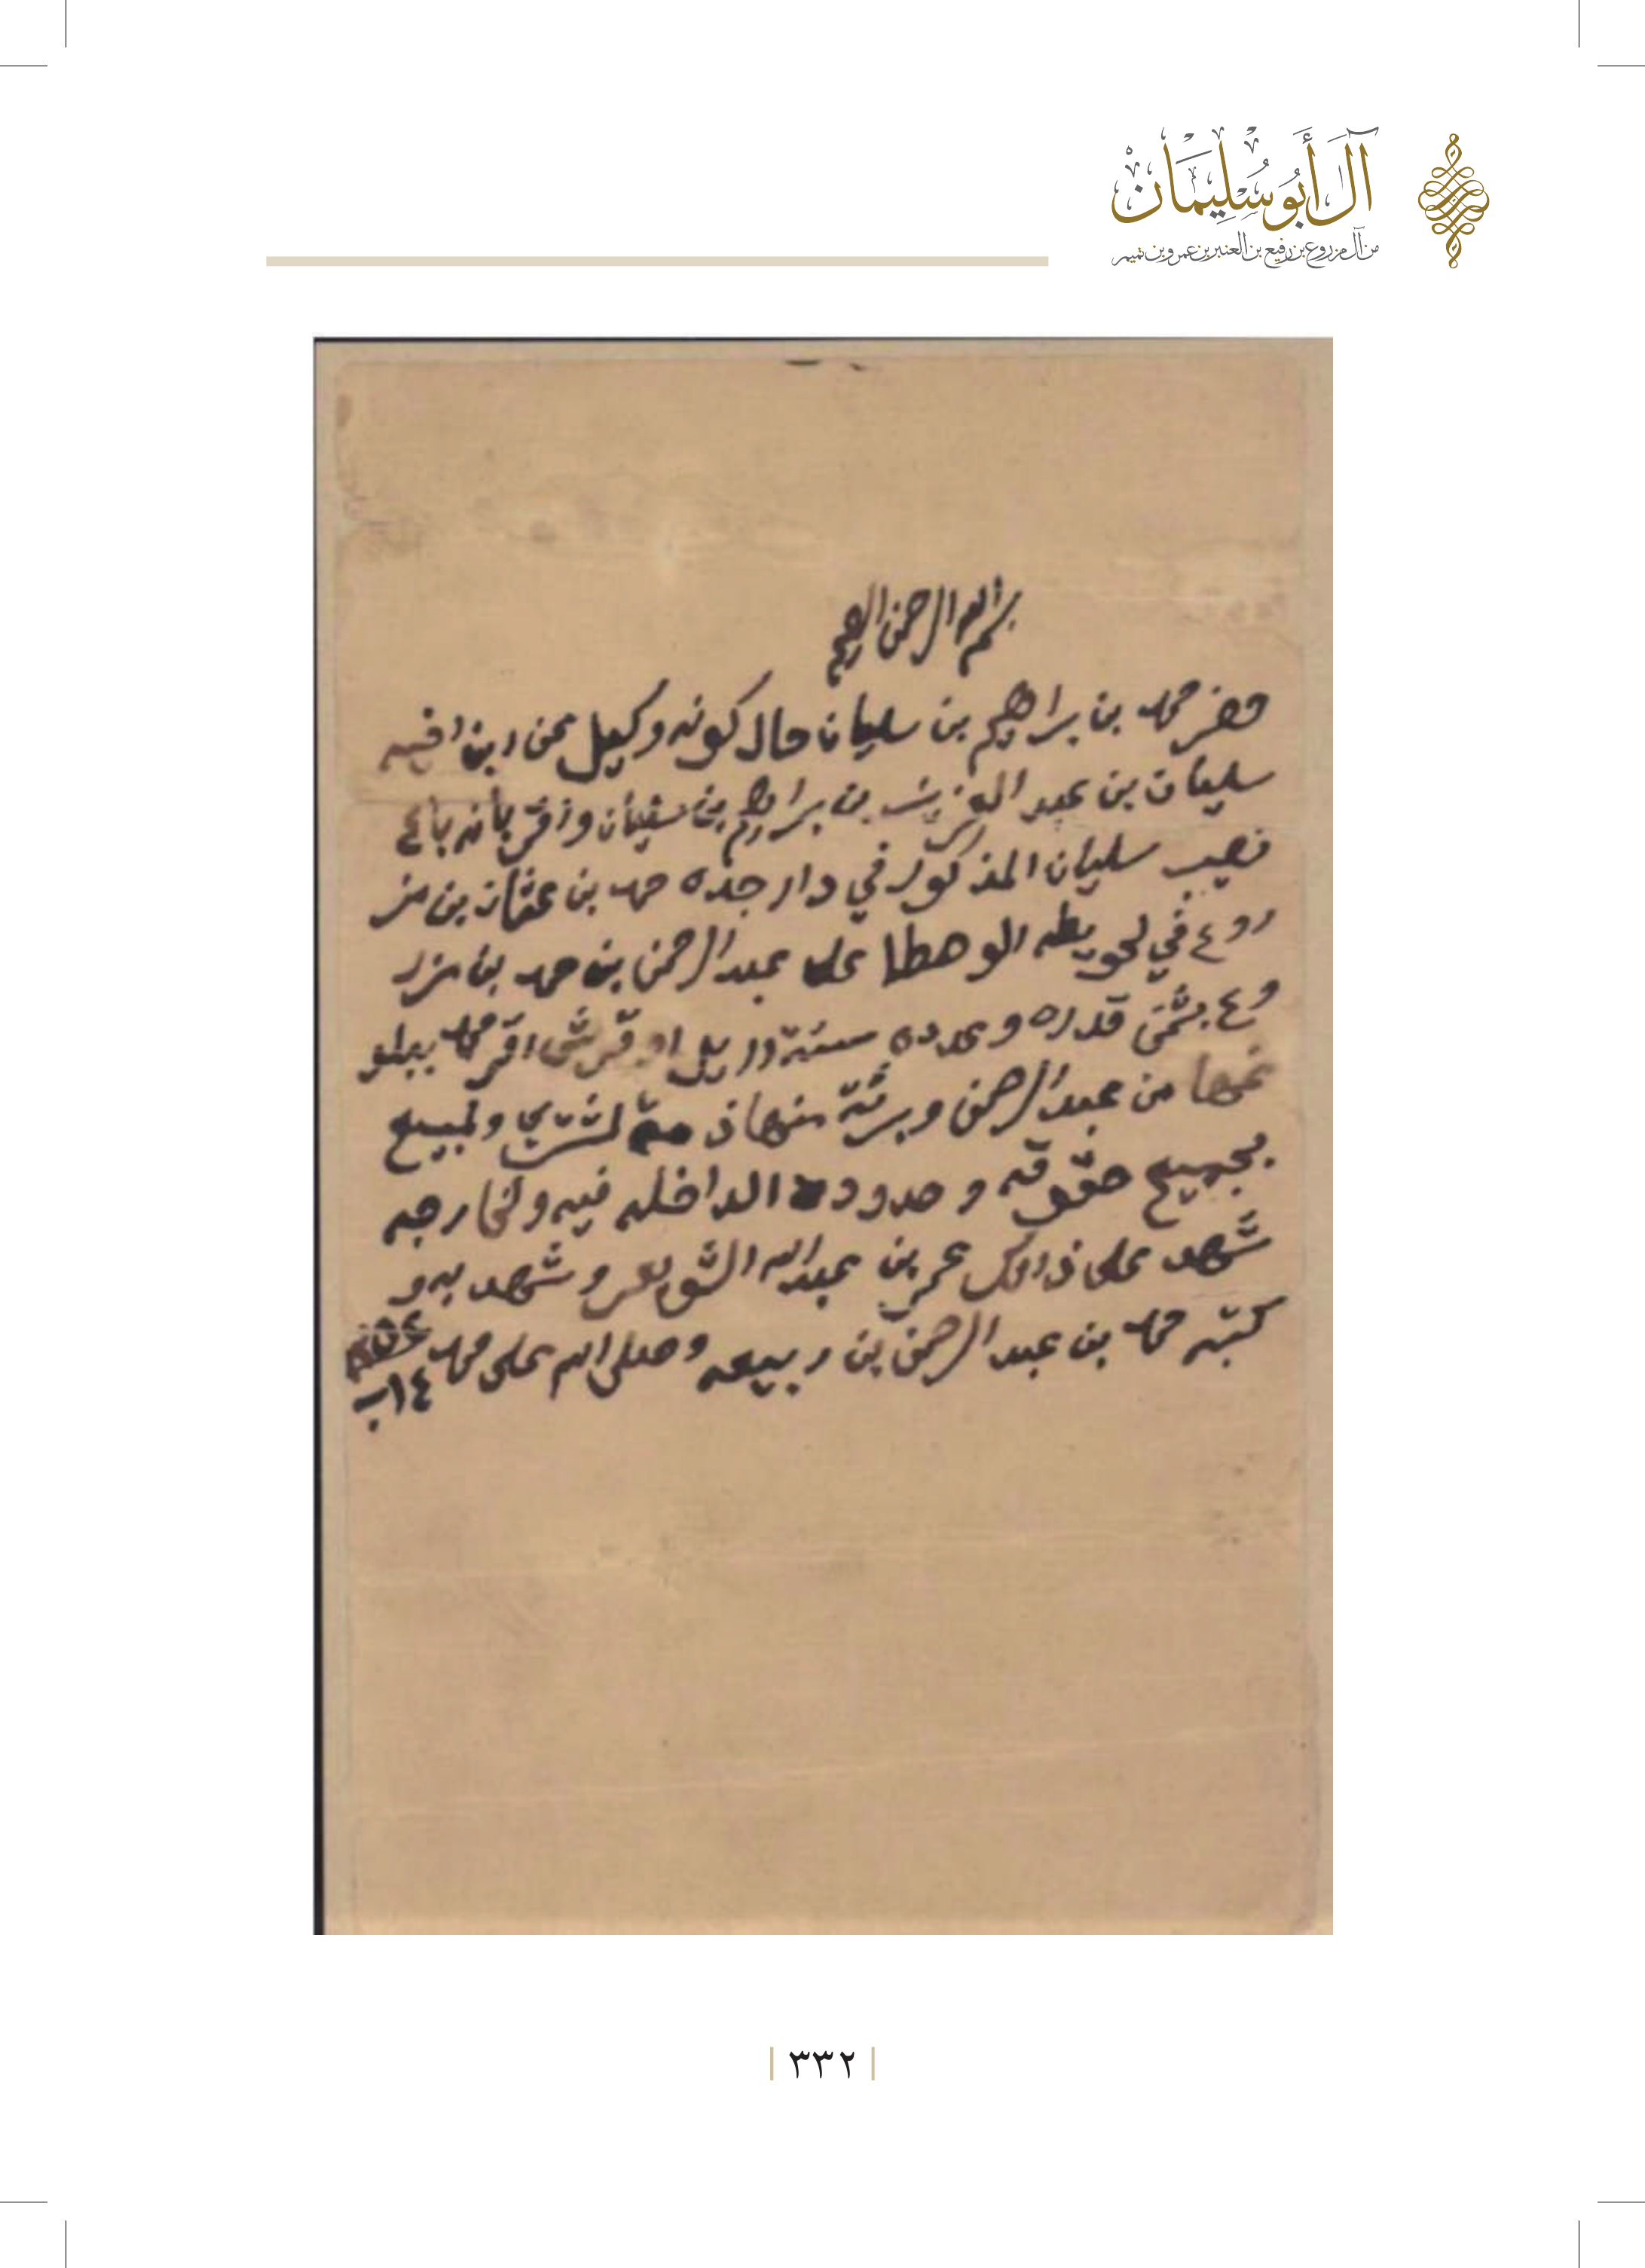 آل أَبُو سُلِيمَان
من آل مزروع بن رفيع بن العنبر بن عمرو بن تميم
بسم الله الرحمن الرحيم
حضر محمد بن براهيم بن سليمان حال كونه وكيل عن ابن اخيه
سليمان بن عبد العزيز بن براهيم بن سليمان واقر بأنه باع
نصيب سليمان المذكور في دار جده حمد بن عثمان بن مز
روع في لحويطه الوسطا على عبد الرحمن بن حمد بن مزر
وع بثمن قدره وعدده ستة اريل اقر محمد ببلو
غها من عبد الرحمن وبرئة منها ذمة لمشتري ولمبيع
بجميع حقوقه وحدوده الداخله فيه ولخارجه
شهد على ذالك عمر بن عبد الله الشويعر وشهد به و
كتبه محمد بن عبد الرحمن بن ربيعه وصلى الله على محمد
٣٣٢